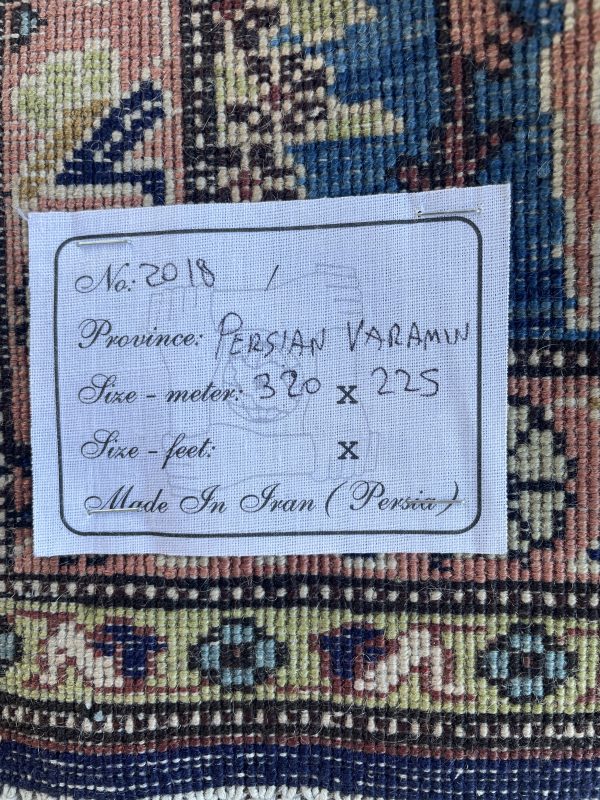 No: 2018 /
Province: PERSIAN VARAMIN
Size - meter: 320 x 225
Size - feet: x
Made In Iran ( Persia )